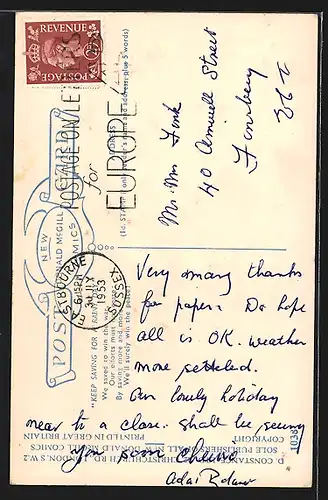 REVENUE
POSTAGE
POSTAGE ON LETTERS
for
EUROPE
EASTBOURNE
6:15 PM
JLY
1953
SUSSEX
POST CARD
NEW
DONALD McGILL
COMICS
(1d. STAMP if only sender's name and address, plus 5 words)
ADDRESS
Mr. Mrs Fink
40 Amwell Street
Finsbury
EC1
"KEEP SAVING FOR A RAINY
We saved to win the war,
Our efforts must not cease
By saving more and more
We'll surely win the peace!
Very many thanks
for paper. Do hope
all is OK. weather
more settled.
Our lovely holiday
near to a close. shall be seeing
you soon cheerio
Ada
D. CONSTANCE
LONDON, S.W.2
SOLE PUBLISHERS OF ALL NEW DONALD McGILL COMICS
COPYRIGHT
PRINTED IN GREAT BRITAIN
1038